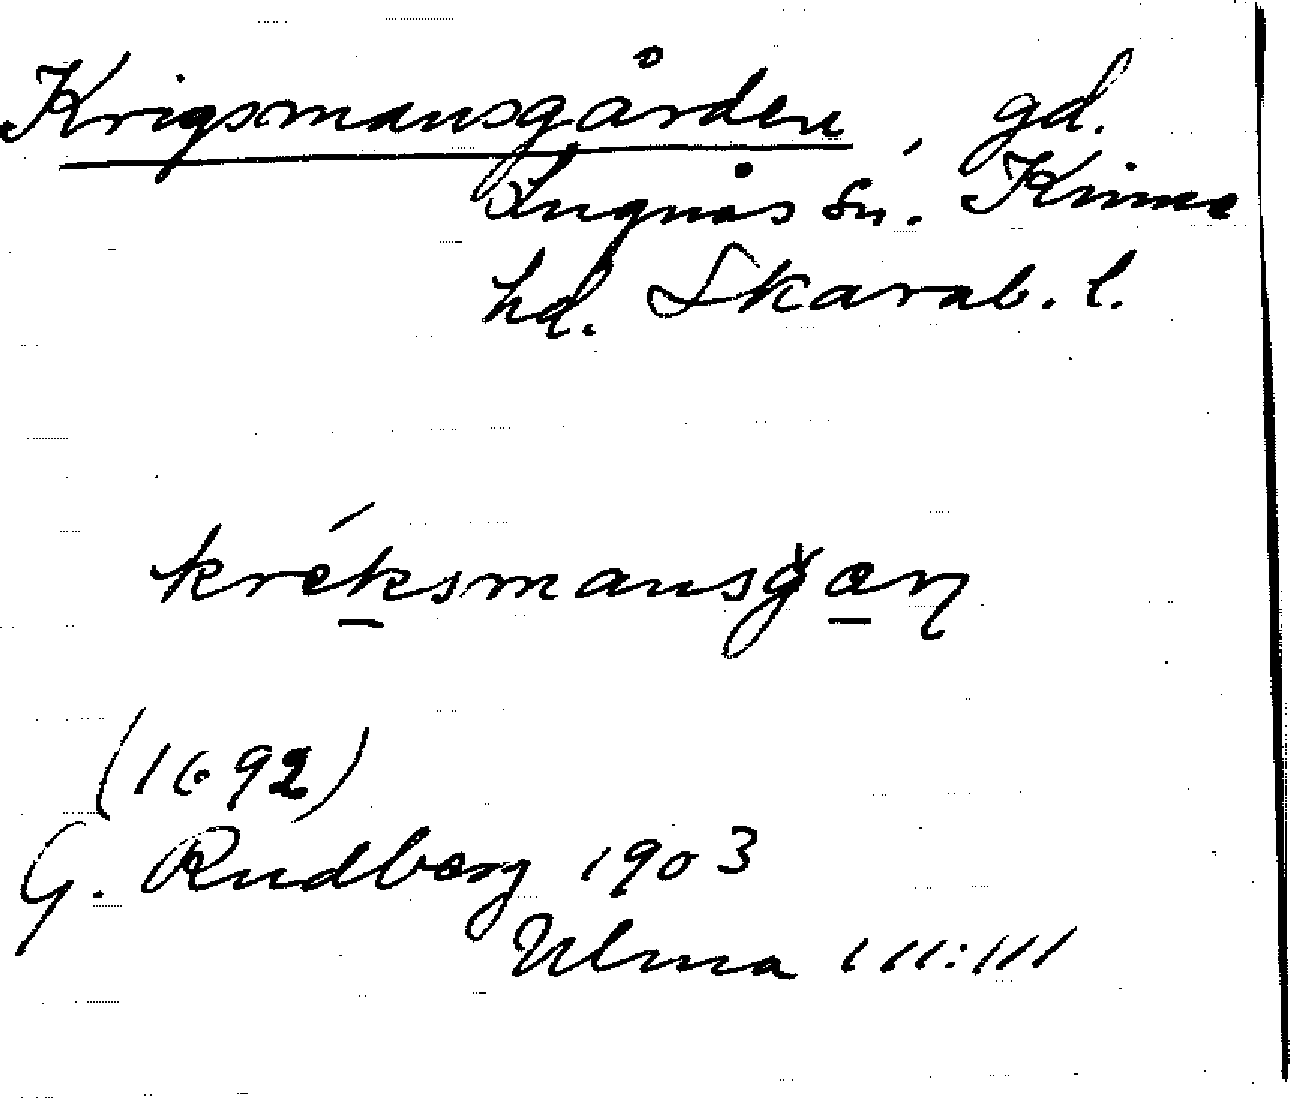 Krigsmansgården, gd.
Lugnås sn. Kinne
hd. Skarab. l.
kréksmansgan
(1692)
G. Rudberg 1903
Ulma 111:111